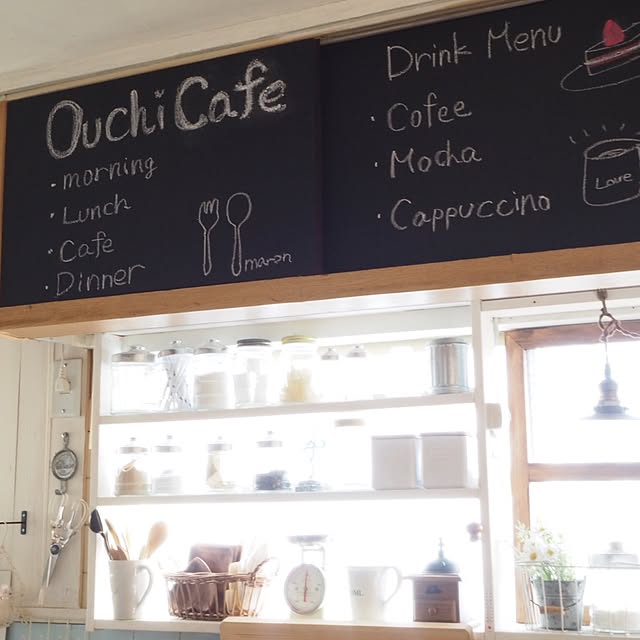 Ouchi Cafe
· morning
· Lunch
· Cafe
· Dinner
maron
Drink Menu
· Cofee
· Mocha
· Cappuccino
Love